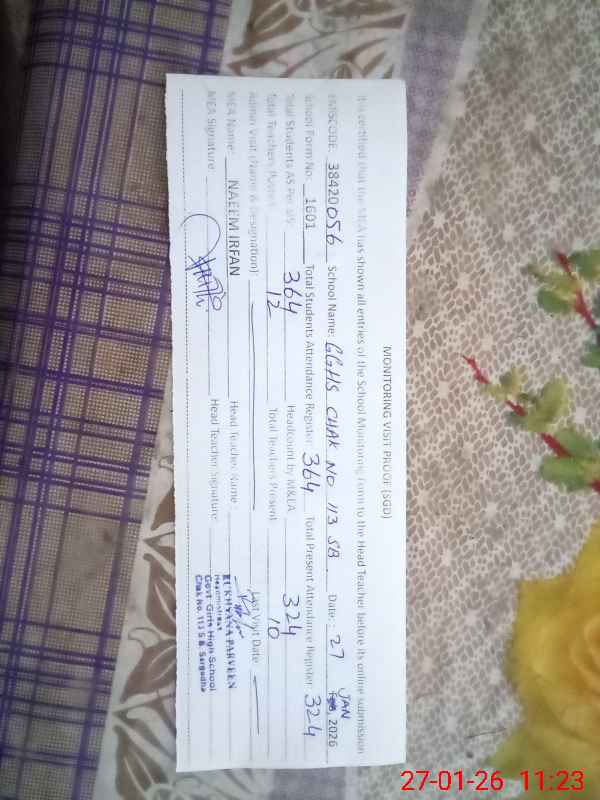 MONITORING VISIT PROOF (SGD)
It is certified that the MEA has shown all entries of the School Monitoring Form to the Head Teacher before its online submission
EMISCODE: 38420056 School Name: GGHS CHAK NO 113 SB. Date: 27 JAN Feb, 2026
School Form No: 1601 Total Students Attendance Register: 364 Total Present Attendance Register: 324
Total Students AS Per SIS: 364 Headcount by M&EA: 324
Total Teachers Posted: 12 Total Teachers Present: 10
Admin Visit (Name & Designation): Last Visit Date:
MEA Name: NAEEM IRFAN Head Teacher Name: RUKHSANA PARVEEN
MEA Signature: Head Teacher Signature:
Headmistress
Govt Girls High School
Chak No. 113 S.B. Sargodha
27-01-26 11:23